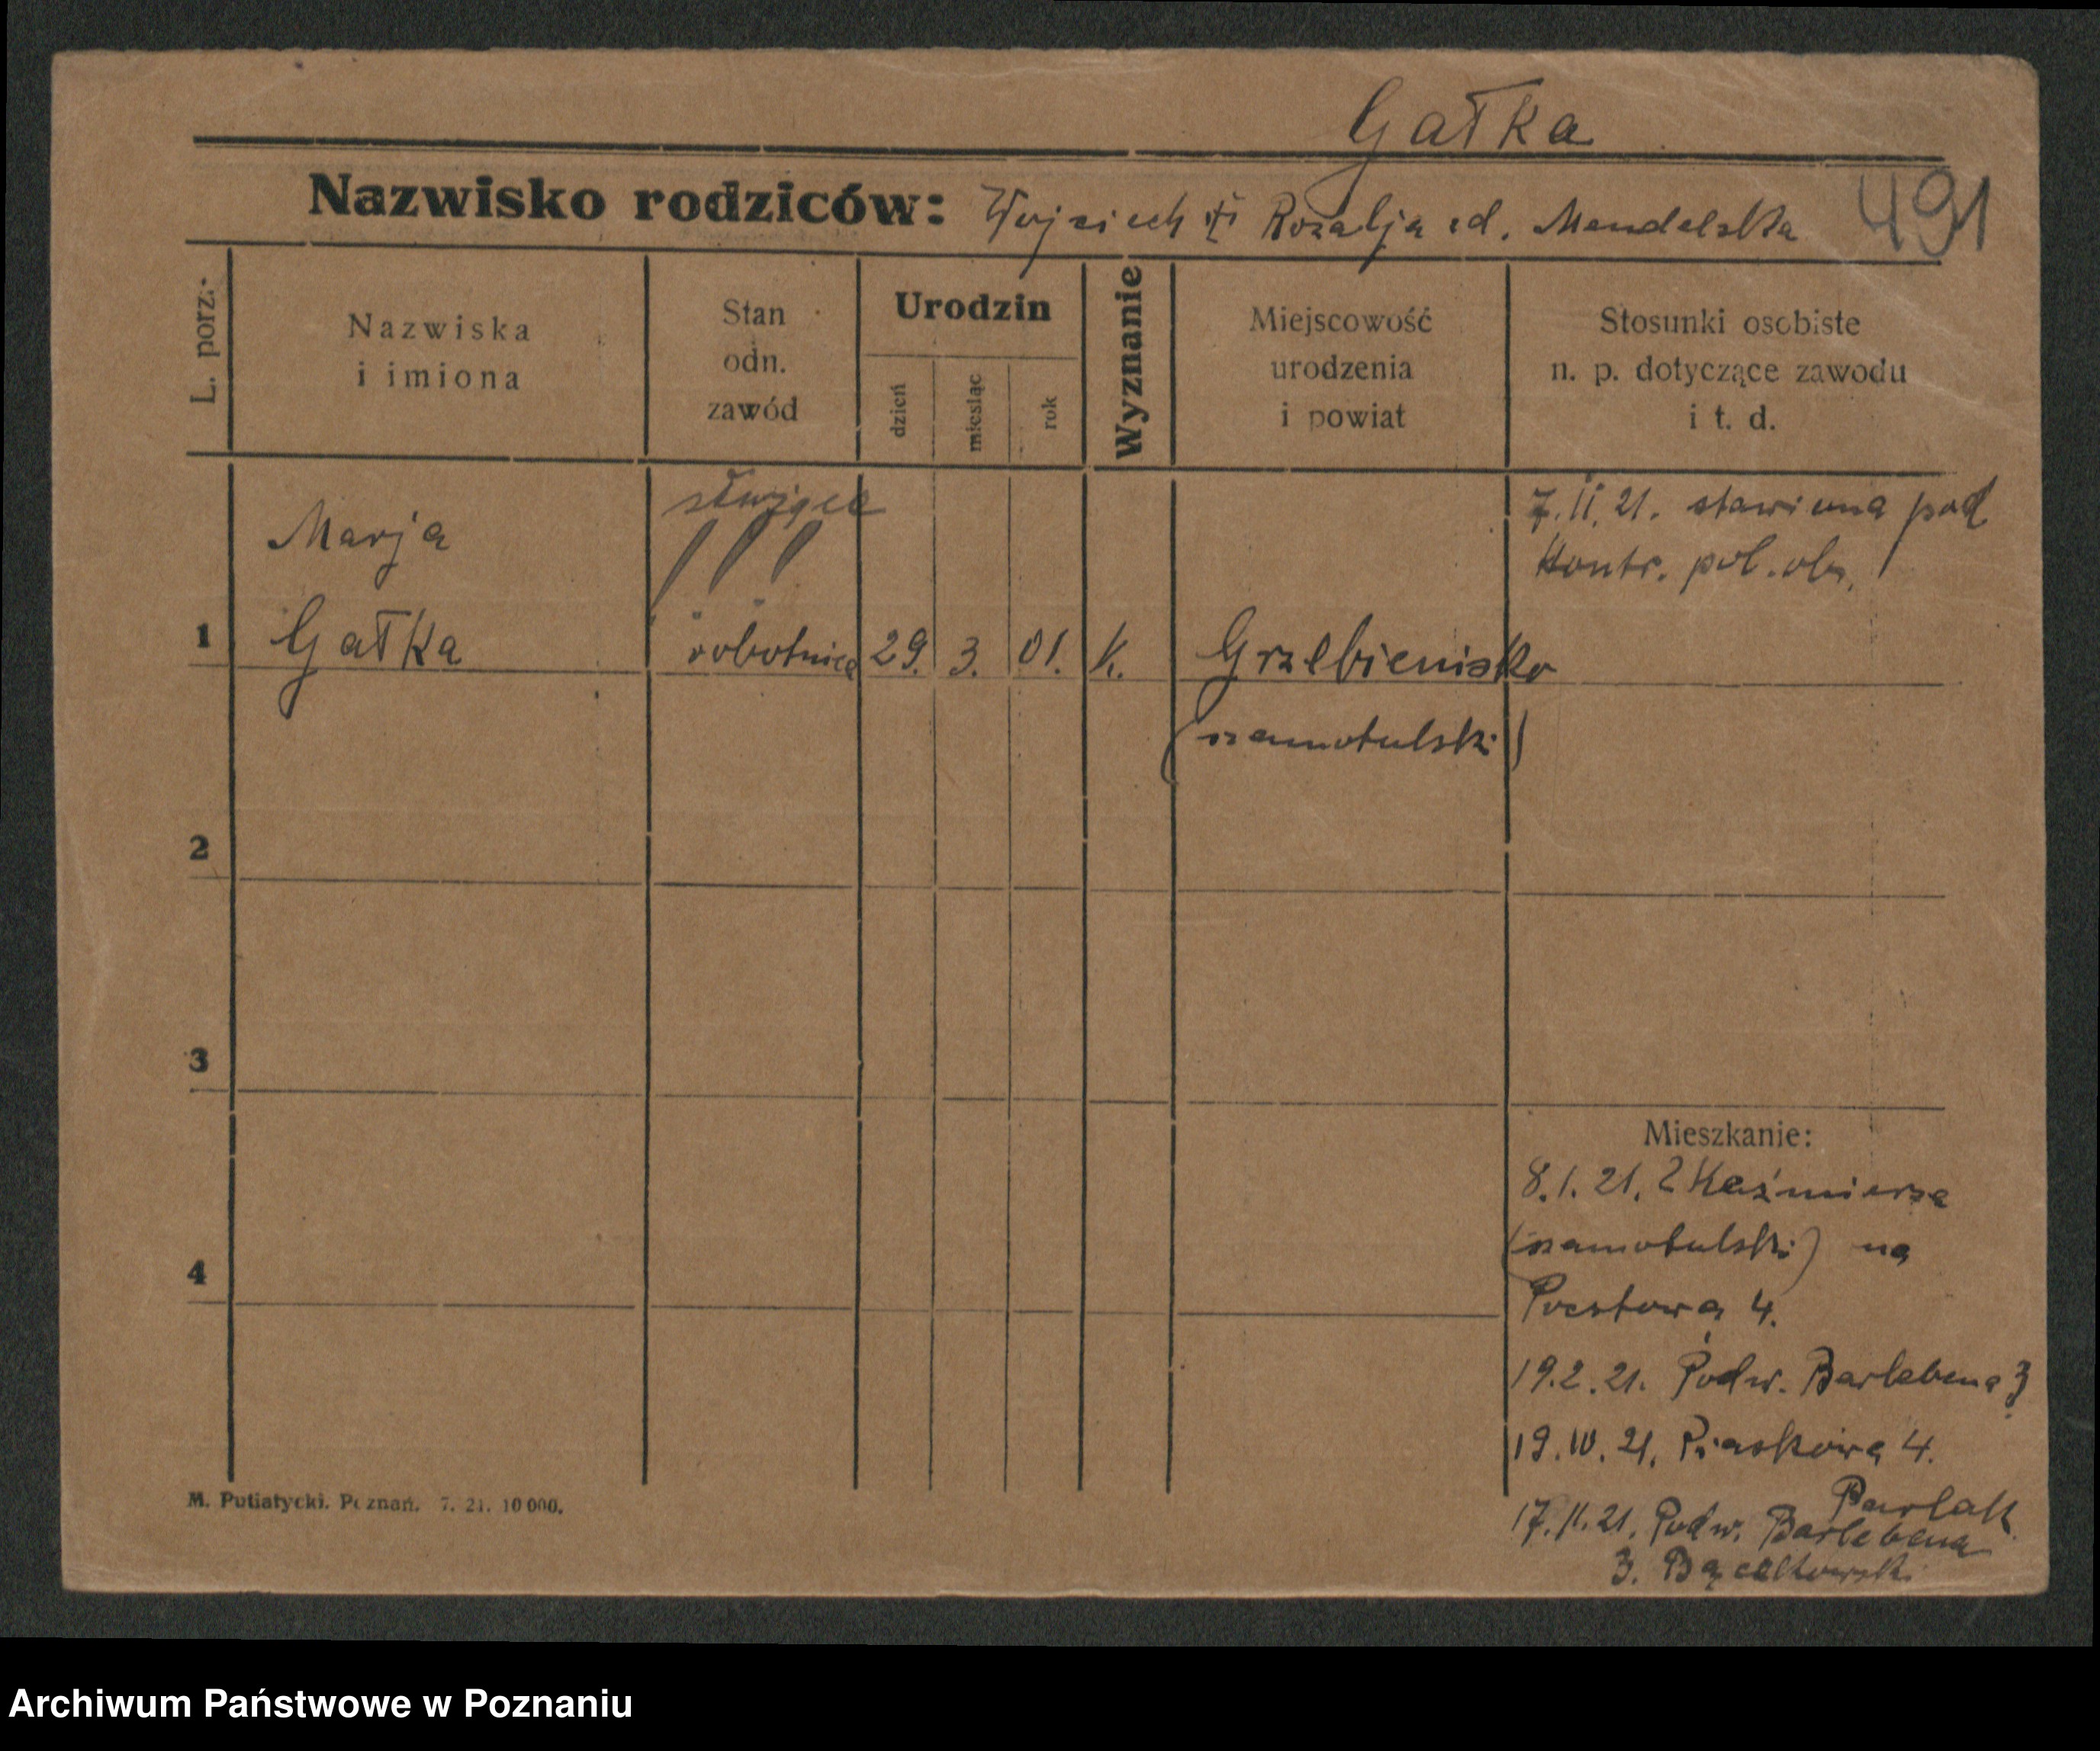 Gałka
Nazwisko rodziców: Wojciech i Rozalja zd. Mendelska 491
L. porz.
Nazwiska
i imiona
Stan
odn.
zawód
Urodzin
dzień
miesiąc
rok
Wyznanie
Miejscowość
urodzenia
i powiat
Stosunki osobiste
n. p. dotyczące zawodu
i t. d.
Marja
służąca
7.II.21. stawiona pod
Kontr. pol. ob.
1 Gałka robotnica 29. 3. 01. k. Grzebienisko
(szamotulski)
2
3
4
Mieszkanie:
8.1.21. z Kaźmierza
(szamotulski) na
Pocztową 4.
19.2.21. Podw. Barlebena 3
19.IV.21. Piaskowa 4.
Pawlak
17.11.21. Podw. Barlebena
3. Bączkowski
M. Putiatycki. Poznań. 7. 21. 10 000.
Archiwum Państwowe w Poznaniu